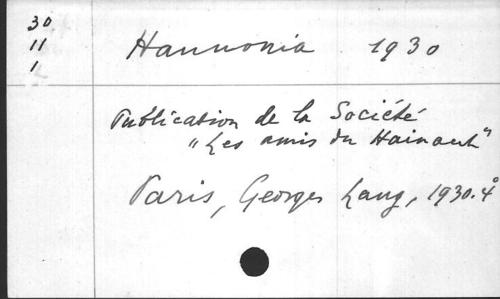 30
11
1
Hannonia 1930
Publication de la Société
"Les amis du Hainaut"
Paris, Georges Lang, 1930. 4°